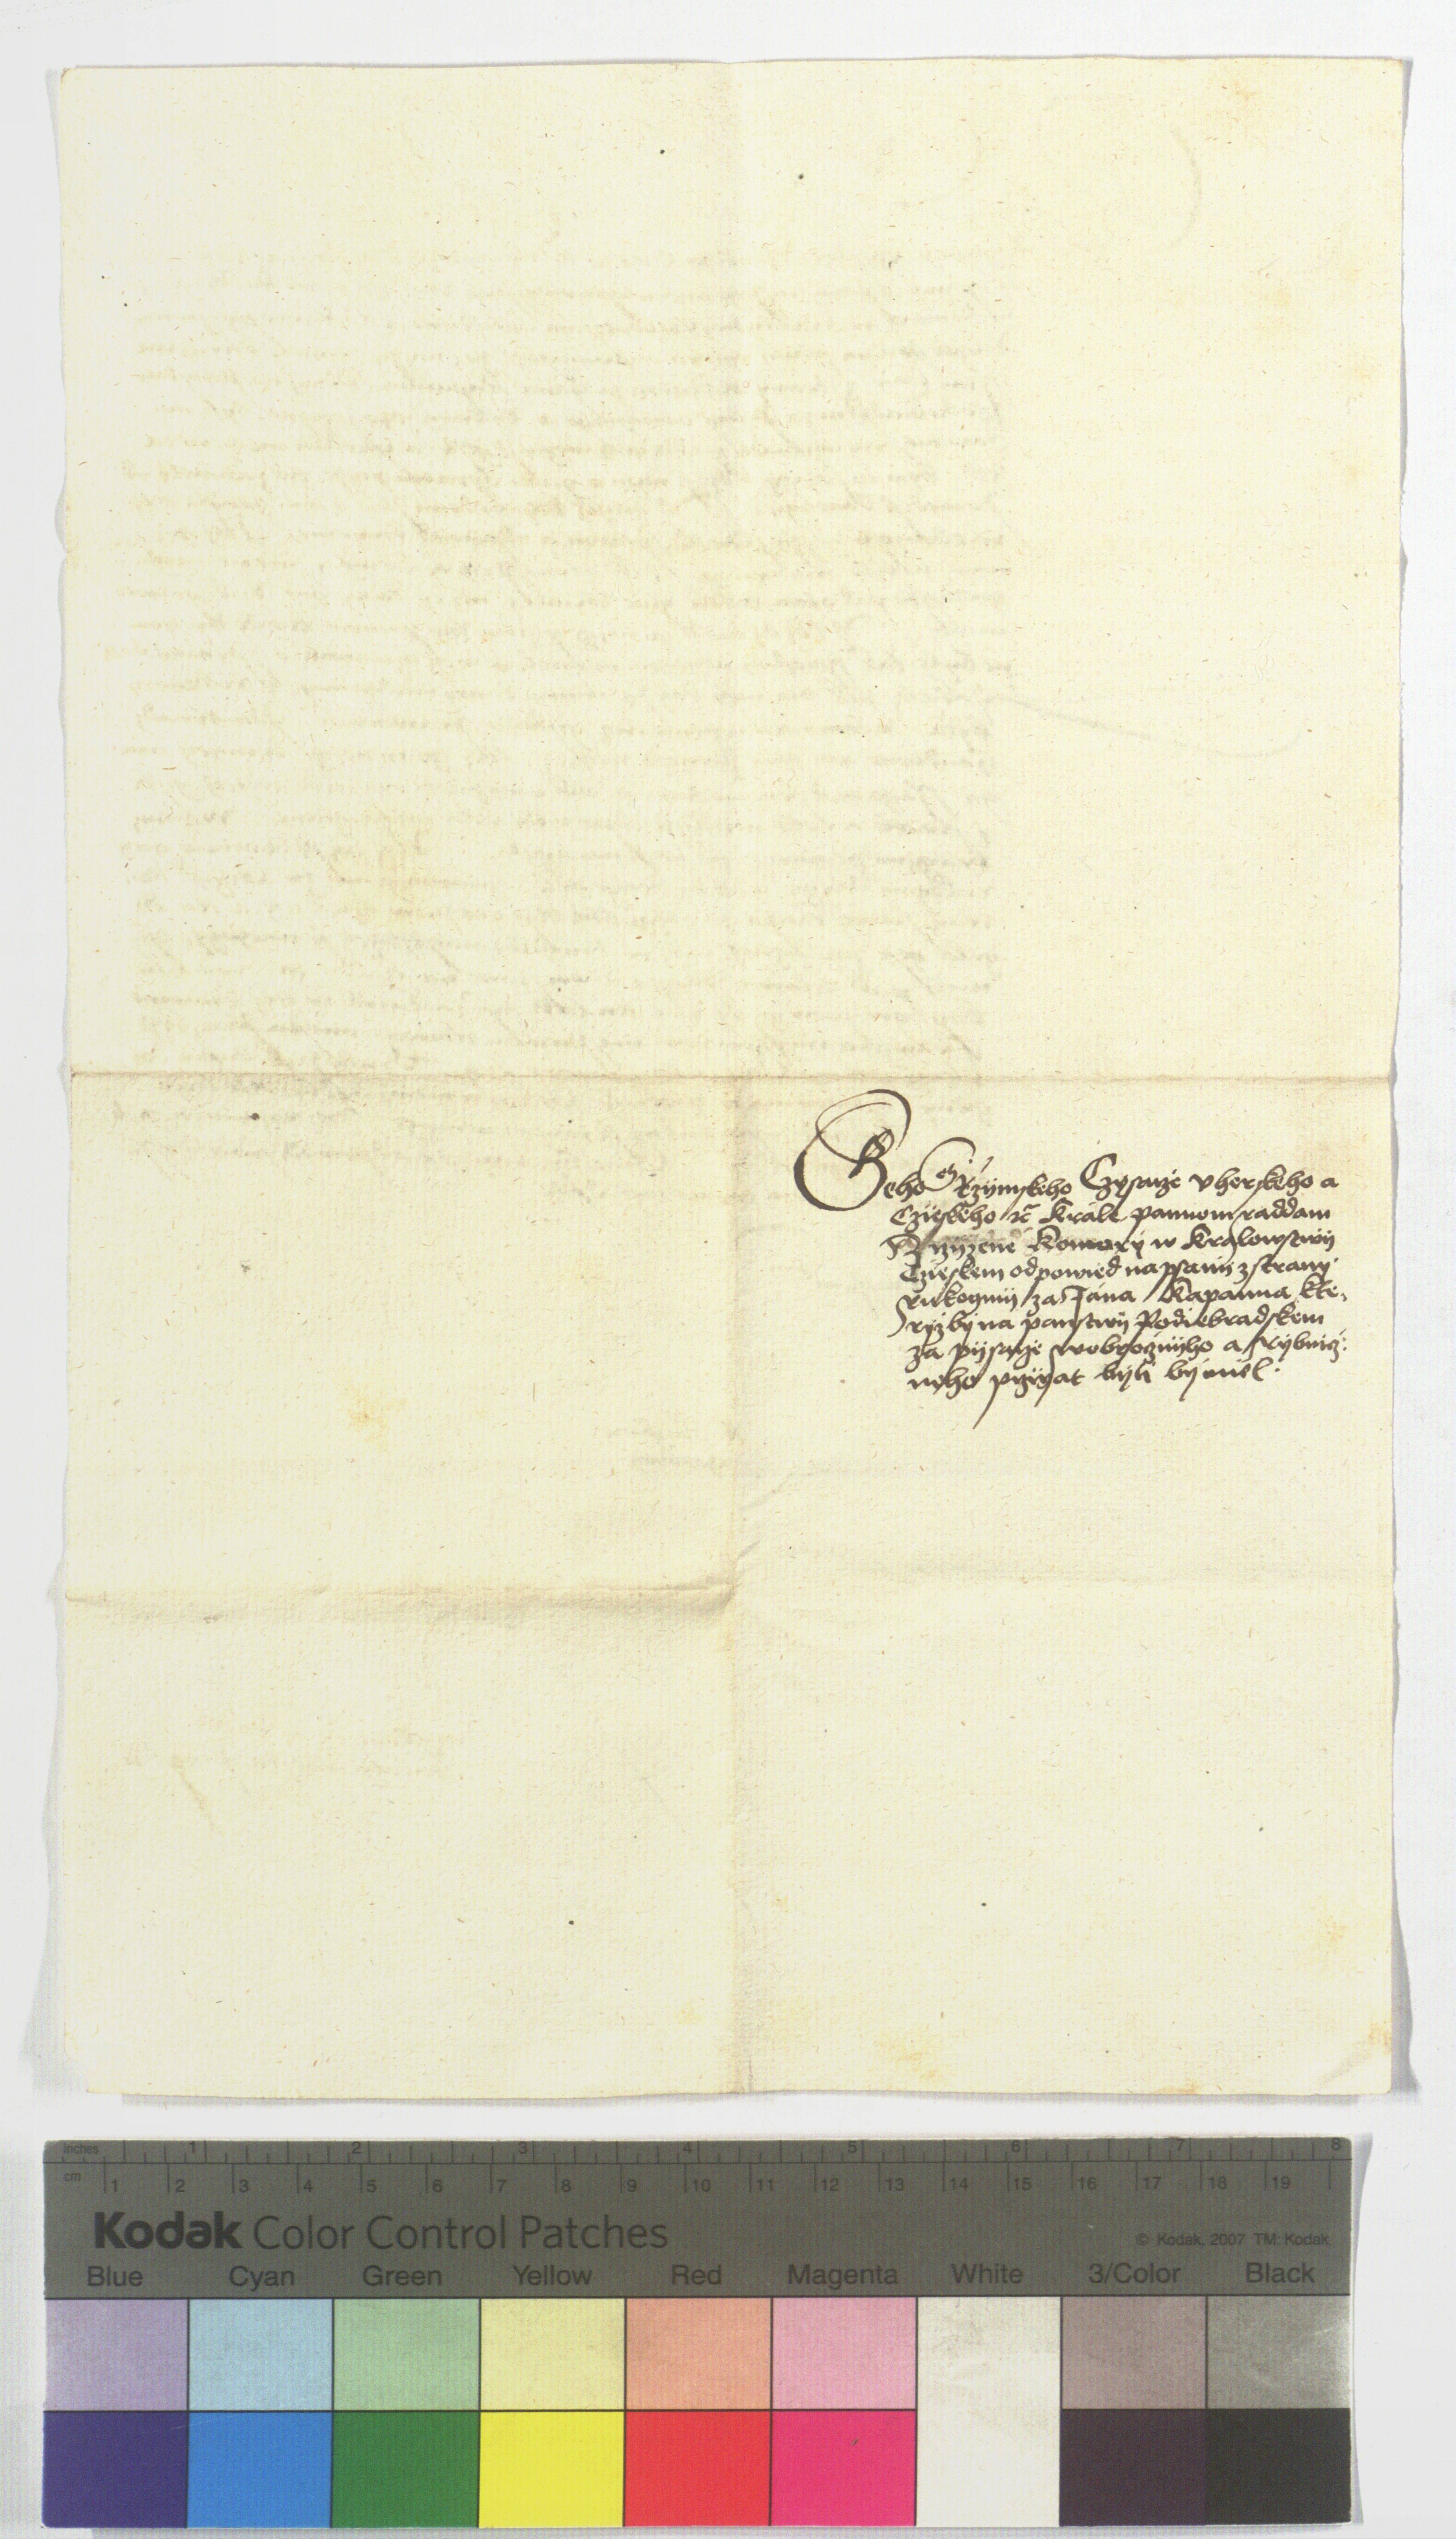 Geho Rzijmskeho Czysarze vherskeho a
Czieskeho ꝛč Krale pannom raddam
Zrzijzene Komory w Kralowstwij
Czieskem odpowied na psanij z strany
rukogmij za Jana Kapauna kte,
ryž by na panstwij Podiebradskem
za pijsarze wobrocznijho a rybnicz:
neho przigat byti by miel.
inches 1 2 3 4 5 6 7 8
cm 1 2 3 4 5 6 7 8 9 10 11 12 13 14 15 16 17 18 19
Kodak Color Control Patches
© Kodak, 2007 TM: Kodak
Blue Cyan Green Yellow Red Magenta White 3/Color Black